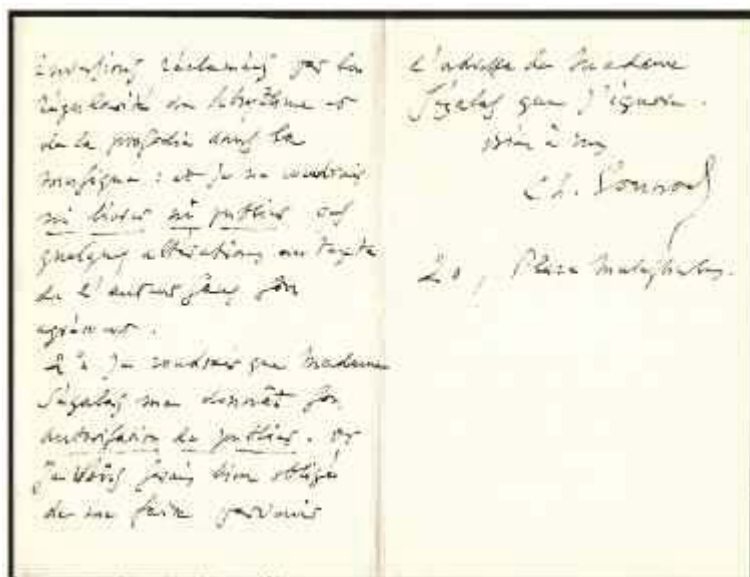 inversions réclamées par la
régularité du rhythme et
de la prosodie dans la
musique : et je ne voudrais
ni livrer ni publier ces
quelques altérations au texte
de l'auteur sans son
agrément.
2° Je voudrais que Madame
Ségalas me donnât son
autorisation de publier. Or
je vous serais bien obligé
de me faire parvenir
l'adresse de Madame
Ségalas que j'ignore.
bien à vous
Ch. Gounod
20, Place Malesherbes.